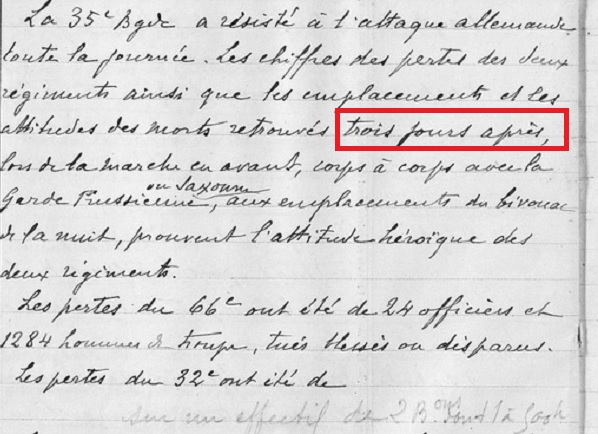 La 35e Bgde a résisté à l'attaque allemande
toute la journée. Les chiffres des pertes des deux
régiments ainsi que les emplacements et les
attitudes des morts retrouvés trois jours après,
lors de la marche en avant, corps à corps avec la
ou Saxonne
Garde Prussienne, aux emplacements du bivouac
de la nuit, prouvent l'attitude héroïque des
deux régiments.
Les pertes du 66e ont été de 24 officiers et
1284 hommes de troupe, tués blessés ou disparus.
Les pertes du 32e ont été de
sur un effectif de 2 Bons